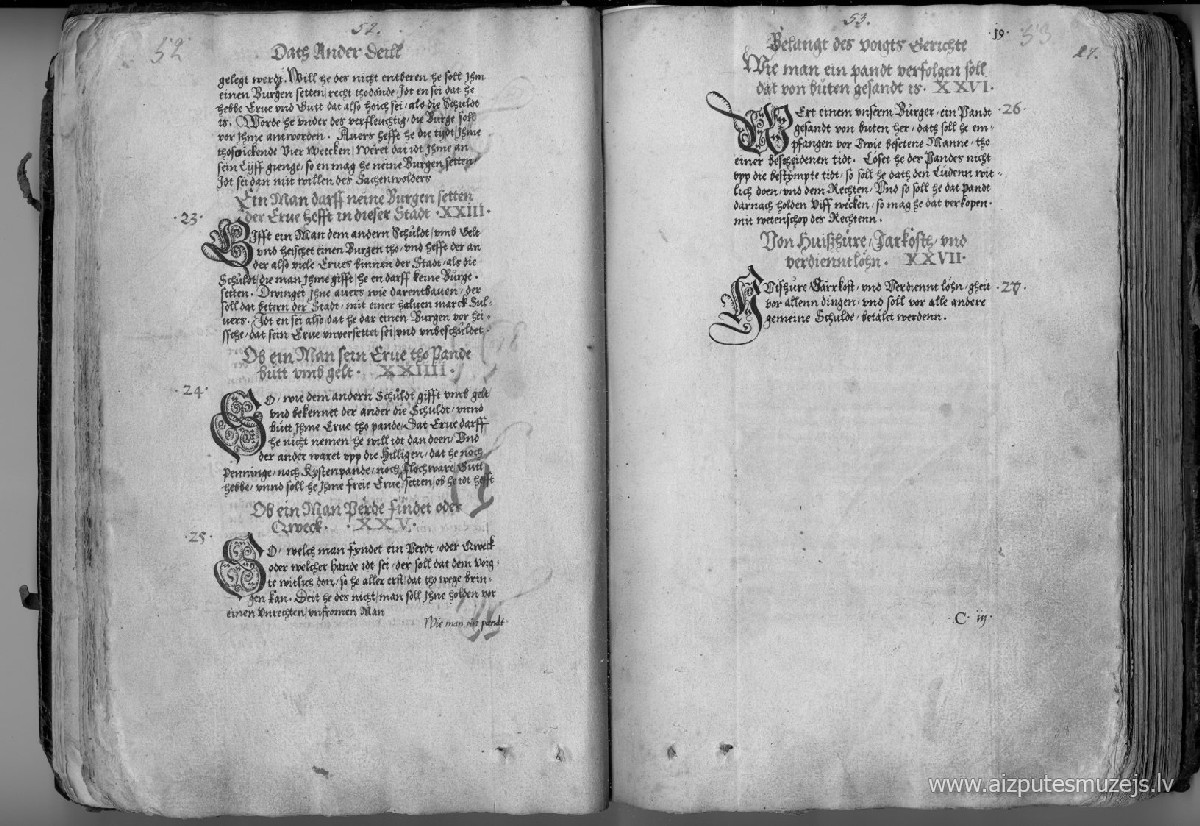 52
52.
Dath Ander Deill
gelegt werdt. Will he des nicht entberen he soll Ihm
einen Bürgen setten recht tho dónde Idt en sei dat he
hebbe Erue vnd Gutt dat also hoich sei als die Schuldt
is. Wórde he vnder des verfluchtig die Bürge soll
vor Ihme antworden. Auers heffe he die tydt Ihme
thoschickende Vier Weecken, Weret dat idt Ihme an
sein Lÿff gienge, so en mag he neine Burgen setten
Idt sei dan mit willen der Sachenwolders
Ein Man darff neine Burgen setten
der Erue hefft in dieser Stadt. XXIII.
23.
Gifft ein Man dem andern Schuldt vmb Gelt
vnd heischet einen Burgen tho, vnd heffe der an
der also viele Erues binnen der Stadt, als die
Schuldt, die man Ihme gifft, he en darff keine Bürge
setten. Dwinget Ihne auers wie darentbauen, der
soll dat betren der Stadt, mit einer haluen marck Sul-
uers. Idt en sei also dat he dar einen Burgen vor hei-
sche, dat sein Erue vnuersettet sei vnd vnbeschuldet
Ob ein Man sein Erue tho Pande
bütt vmb gelt. XXIIII.
24.
SO, wie dem andern Schuldt gifft vmb gelt
vnd bekennet der ander die Schuldt, vnnd
bütt Ihme Erue tho pande, Dat Erue darff
he nicht nemen he will idt dan doen, Vnd
der ander waret vpp die Hilligen, dat he noch
Penninge, noch Kystenpande, noch Flochware Gutt
hebbe, vnnd soll he Ihme freie Erue setten, ob he idt hefft
Ob ein Man Perde findet oder
Qweck. XXV.
25.
SO, welch man fyndet ein Perdt, oder Qweck
oder welcher hande idt sei, der soll dat dem Vog
te witlich don, so he aller erst, dat tho wege brin-
gen kan. Deit he des nicht, man soll Ihne holden vor
einen Vnrechten, vnfromen Man
Wie man ein pandt
53.
.19. 53
27.
Belangt des voigts Gerichte
Wie man ein pandt verfolgen soll
dat von büten gesandt is. XXVI.
26
Wert einem vnserm Bürger, ein Pandt
gesandt von buten her, dath soll he em-
pfangen vor twie besetene Manne, tho
einer bescheidenen tidt. Loset he der Pandes nicht
vpp die bestympte tidt, so soll he dath den Lüdenn wit-
lich doen, vnd dem Rechten, Vnd so soll he dat pandt
darnach holden Viff wecken, so mag he dat verkopen.
mit wetenschop des Rechtenn.
Von Huißhüre, Jarkosth, vnd
verdienntlohn. XXVII.
27.
Huißhüre Gairkost, vnd Verdiennt lóhn, gheit
vor allenn dingen, vnd soll vor alle andere
gemeine Schulde, betalet werdenn.
C. iij.
www.aizputesmuzejs.lv